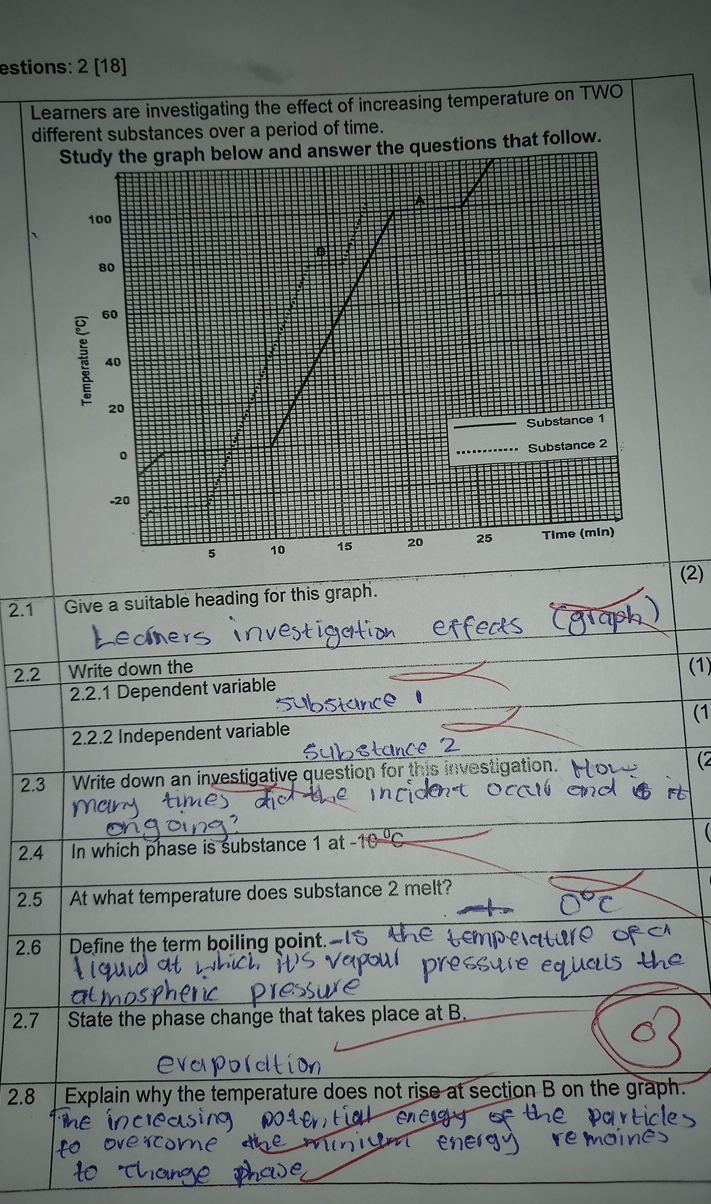 estions: 2 [18]
Learners are investigating the effect of increasing temperature on TWO
different substances over a period of time.
Study the graph below and answer the questions that follow.
100
80
60
40
20
0
-20
Temperature (°C)
A
B
Substance 1
Substance 2
5 10 15 20 25 Time (min)
2.1 Give a suitable heading for this graph. (2)
Learners investigation effects (graph)
2.2 Write down the
2.2.1 Dependent variable (1)
substance 1
2.2.2 Independent variable (1
substance 2
2.3 Write down an investigative question for this investigation. How (2
many times did the incident occur and is it
ongoing?
2.4 In which phase is substance 1 at -10 °C (
2.5 At what temperature does substance 2 melt?
0°C
2.6 Define the term boiling point. -Is the temperature of a
liquid at which it's vapour pressure equals the
atmospheric pressure
2.7 State the phase change that takes place at B.
03
evaporation
2.8 Explain why the temperature does not rise at section B on the graph.
The increasing potential energy of the particles
to overcome the minium energy remaines
to change phase